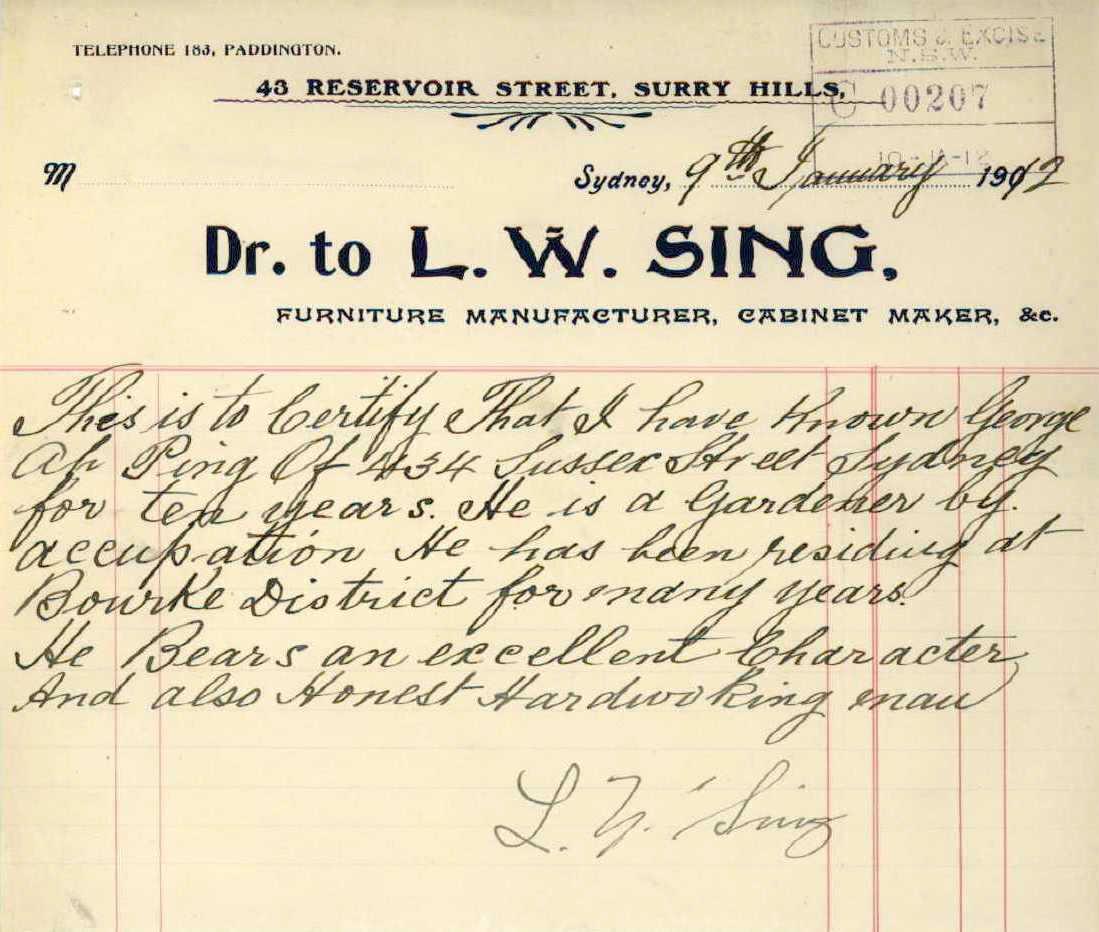 TELEPHONE 183, PADDINGTON.
CUSTOMS & EXCISE
N.S.W.
43 RESERVOIR STREET, SURRY HILLS,
C 00207
10-JA-12
M
Sydney, 9th January 1912
Dr. to L. W. SING,
FURNITURE MANUFACTURER, CABINET MAKER, &c.
This is to Certify That I have Known George
Ah Ping Of 434 Sussex Street Sydney
for ten years. He is a Gardener by.
accupation He has been residing at
Bourke District for many years.
He Bears an excellent Character
And also Honest Hardwoking man
L. Y. Sing